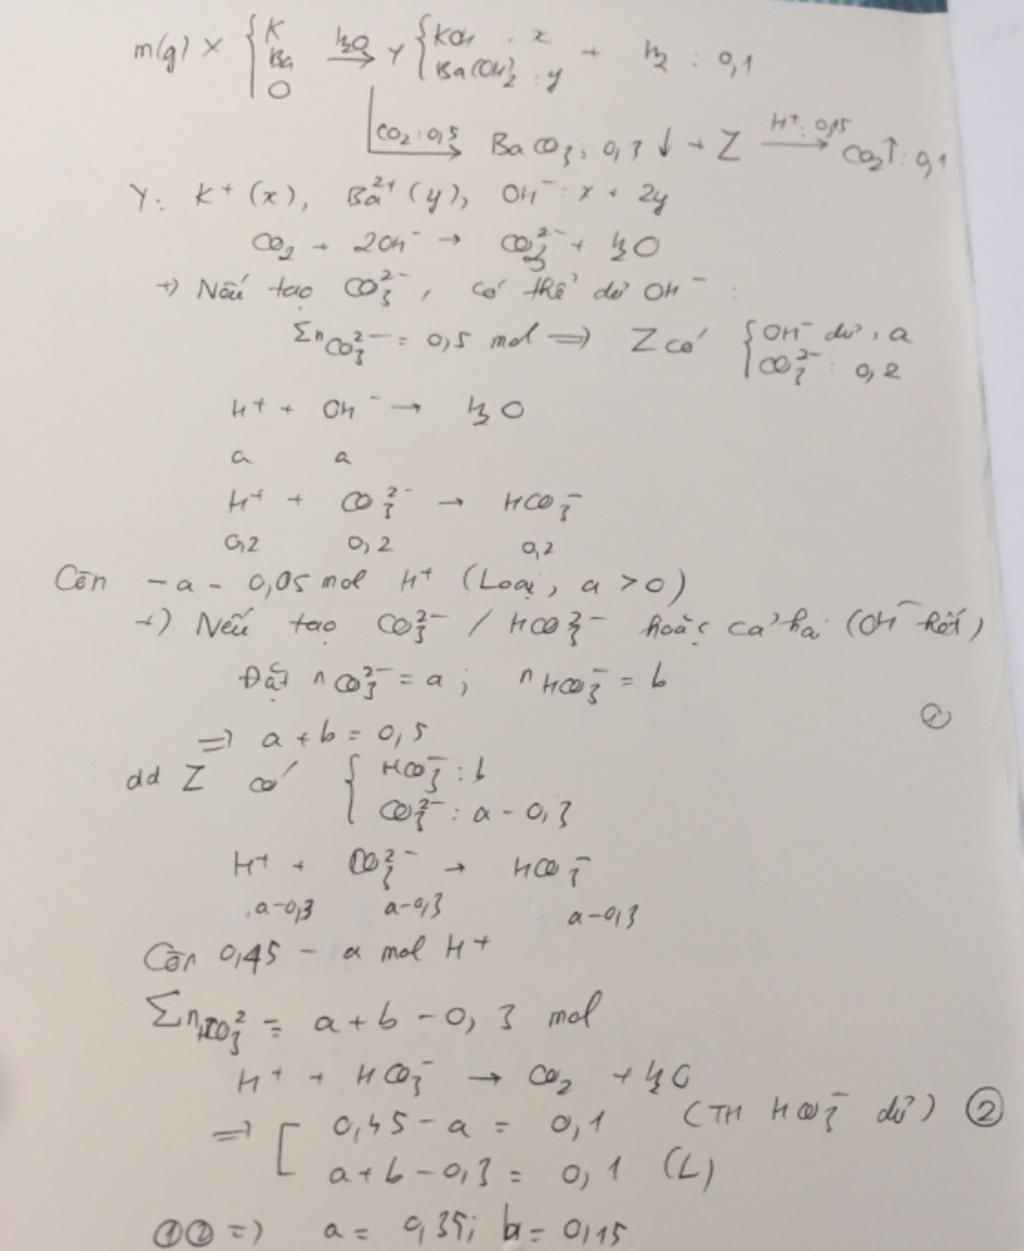 m(g) X { K Ba O H₂O → Y { KOH : x Ba(OH)₂ : y + H₂ : 0,1
CO₂ : 0,5 → BaCO₃ : 0,3 ↓ + Z H⁺ : 0,15 → CO₂↑ : 0,1
Y: K⁺ (x), Ba²⁺ (y), OH⁻ : x + 2y
CO₂ + 2OH⁻ → CO₃²⁻ + H₂O
+) Nếu tạo CO₃²⁻, có thể dư OH⁻ :
Σn CO₃²⁻ = 0,5 mol ⇒ Z có { OH⁻ dư : a CO₃²⁻ : 0,2
H⁺ + OH⁻ → H₂O
a a
H⁺ + CO₃²⁻ → HCO₃⁻
0,2 0,2 0,2
Còn -a - 0,05 mol H⁺ (Loại, a > 0)
+) Nếu tạo CO₃²⁻ / HCO₃⁻ hoặc cả hai (OH⁻ hết)
Đặt n CO₃²⁻ = a ; n HCO₃⁻ = b
⇒ a + b = 0,5 ①
dd Z có { HCO₃⁻ : b CO₃²⁻ : a - 0,3
H⁺ + CO₃²⁻ → HCO₃⁻
a-0,3 a-0,3 a-0,3
Còn 0,45 - a mol H⁺
Σn HCO₃⁻ = a + b - 0,3 mol
H⁺ + HCO₃⁻ → CO₂ + H₂O
⇒ [ 0,45 - a = 0,1 (TH HCO₃⁻ dư) ②
a + b - 0,3 = 0,1 (L)
①② ⇒) a = 0,35; b = 0,15